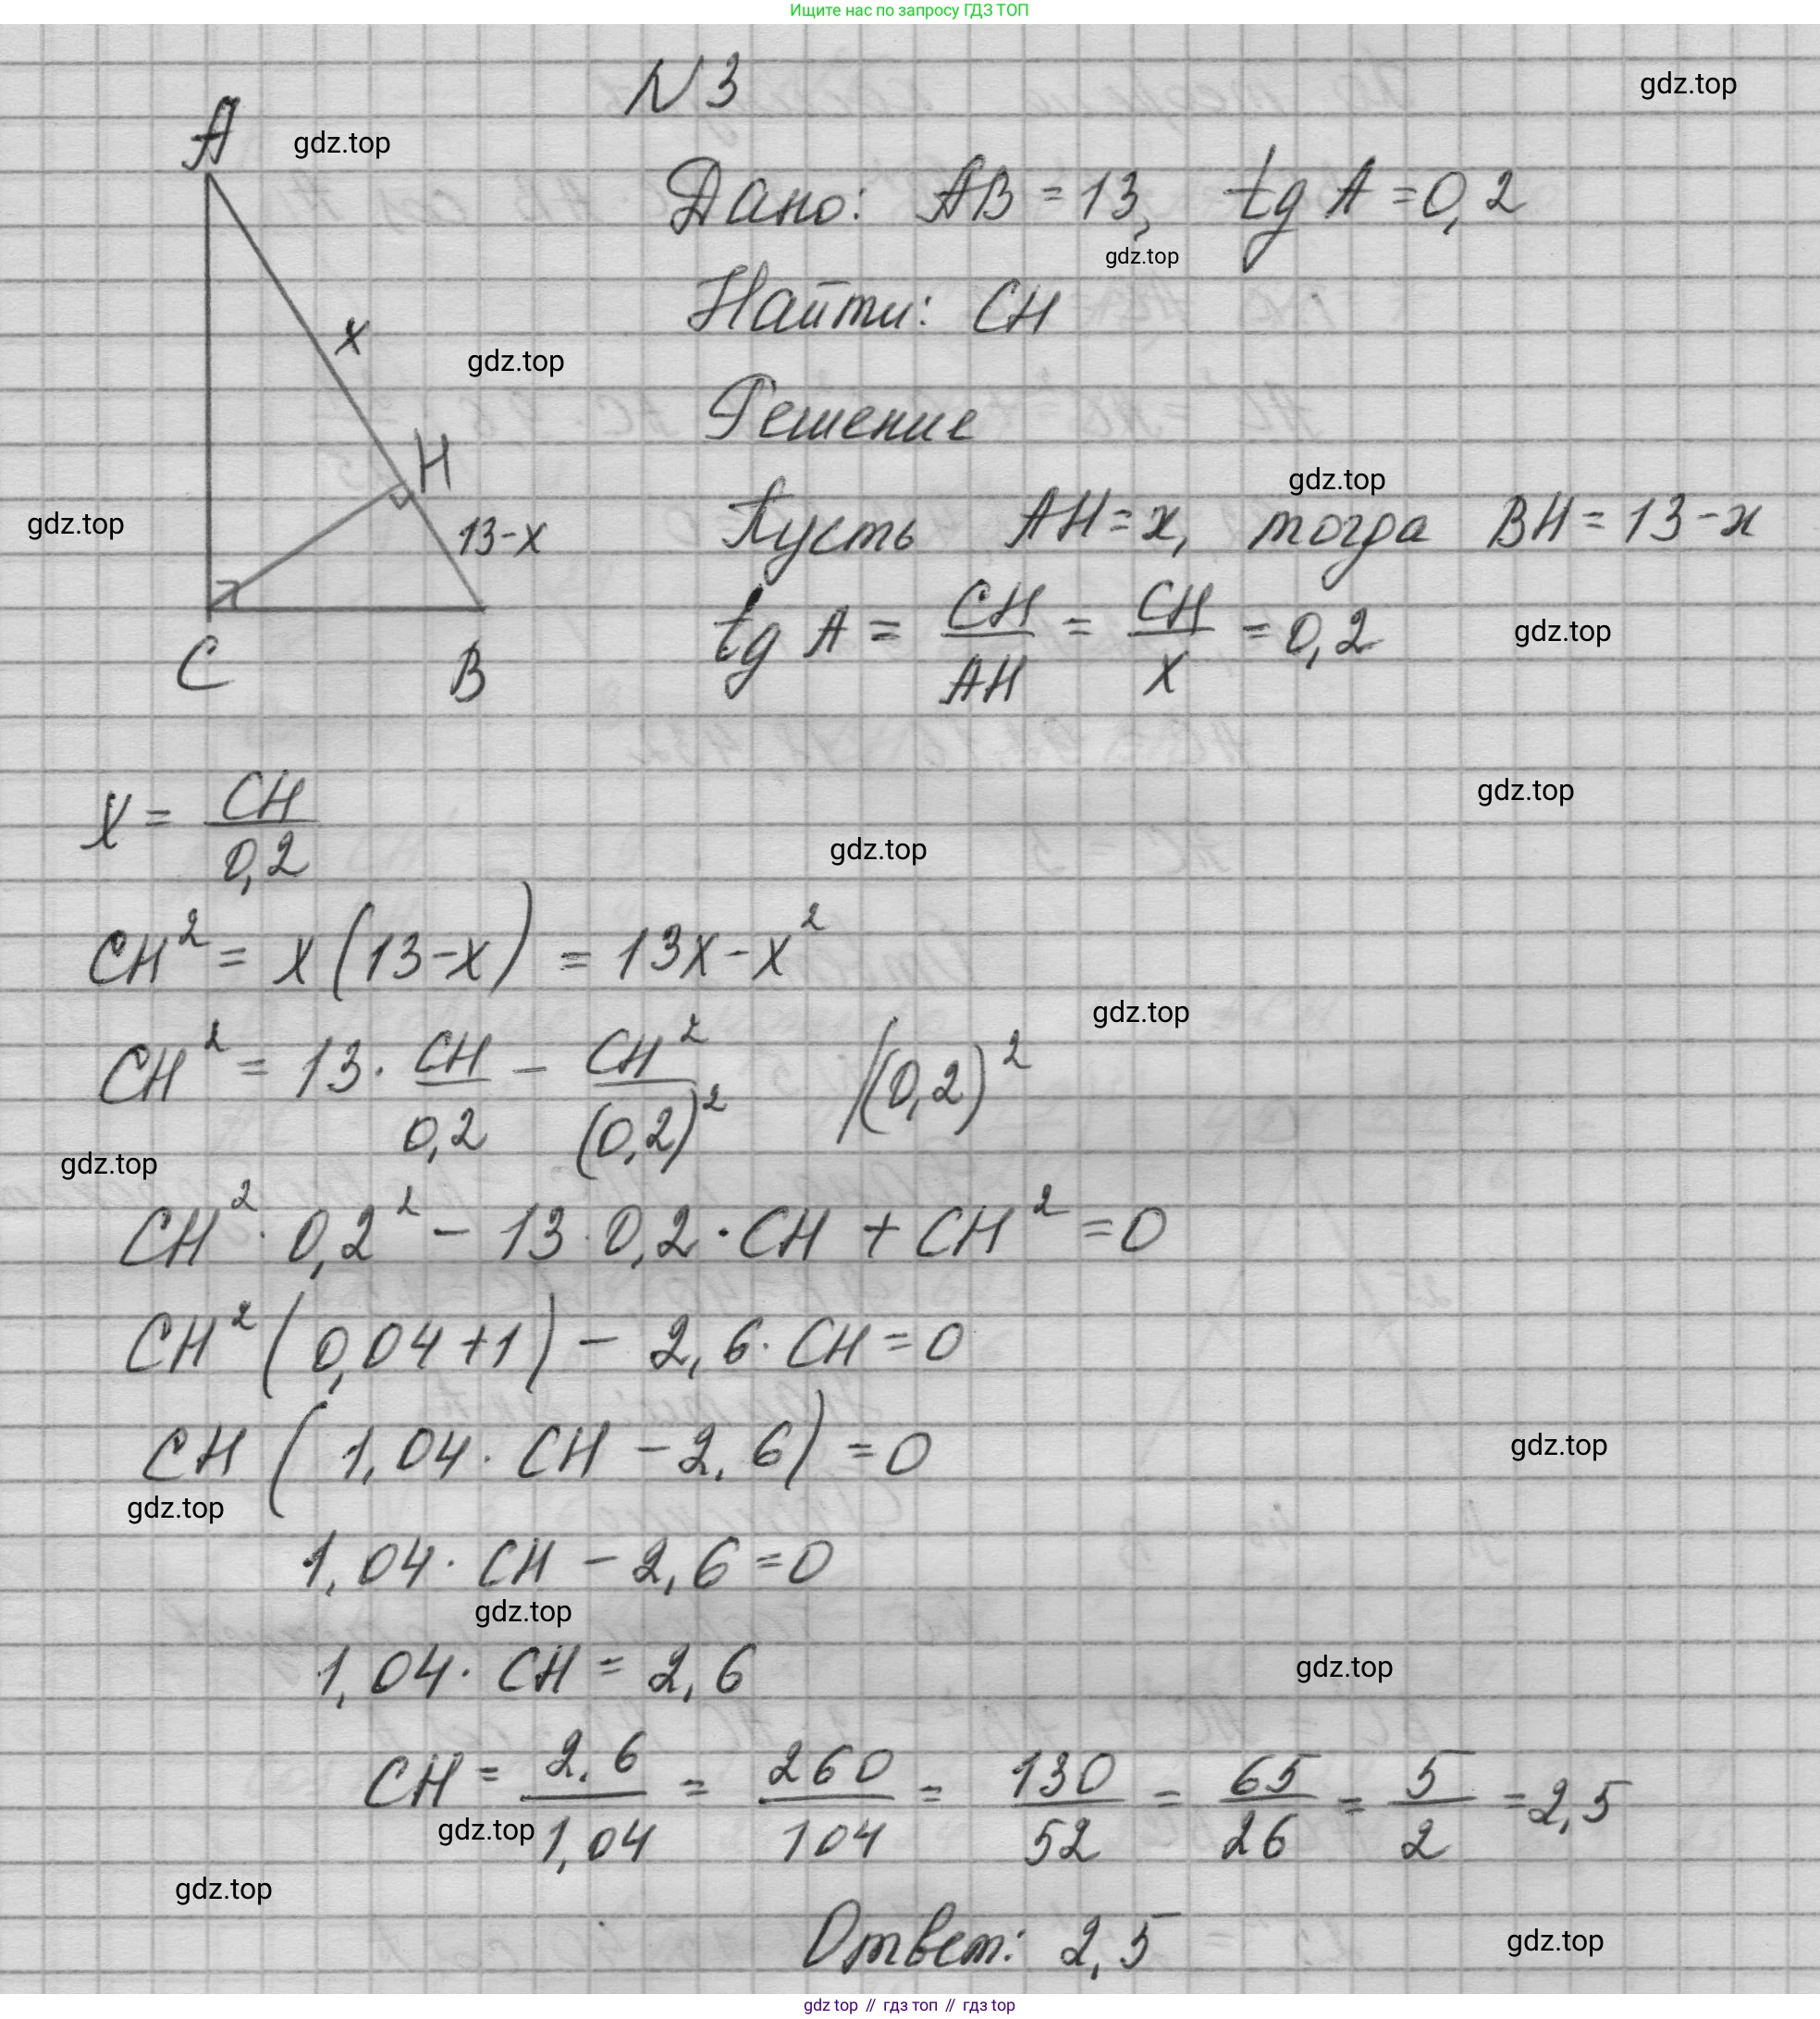 Ищите нас по запросу ГДЗ ТОП
N 3
gdz.top
A
gdz.top
Дано: AB = 13, tg A = 0,2
gdz.top
Найти: CH
x
gdz.top
Решение
H
gdz.top
gdz.top
13-x
Пусть AH = x, тогда BH = 13 - x
C
B
tg A = CH/AH = CH/x = 0,2
gdz.top
x = CH/0,2
gdz.top
gdz.top
CH² = x(13-x) = 13x - x²
gdz.top
CH² = 13 · CH/0,2 - CH²/(0,2)² /(0,2)²
gdz.top
CH² · 0,2² - 13 · 0,2 · CH + CH² = 0
CH² (0,04 + 1) - 2,6 · CH = 0
CH (1,04 · CH - 2,6) = 0
gdz.top
gdz.top
1,04 · CH - 2,6 = 0
gdz.top
1,04 · CH = 2,6
gdz.top
CH = 2,6/1,04 = 260/104 = 130/52 = 65/26 = 5/2 = 2,5
gdz.top
gdz.top
Ответ: 2,5
gdz.top
gdz top // гдз топ // гдз top